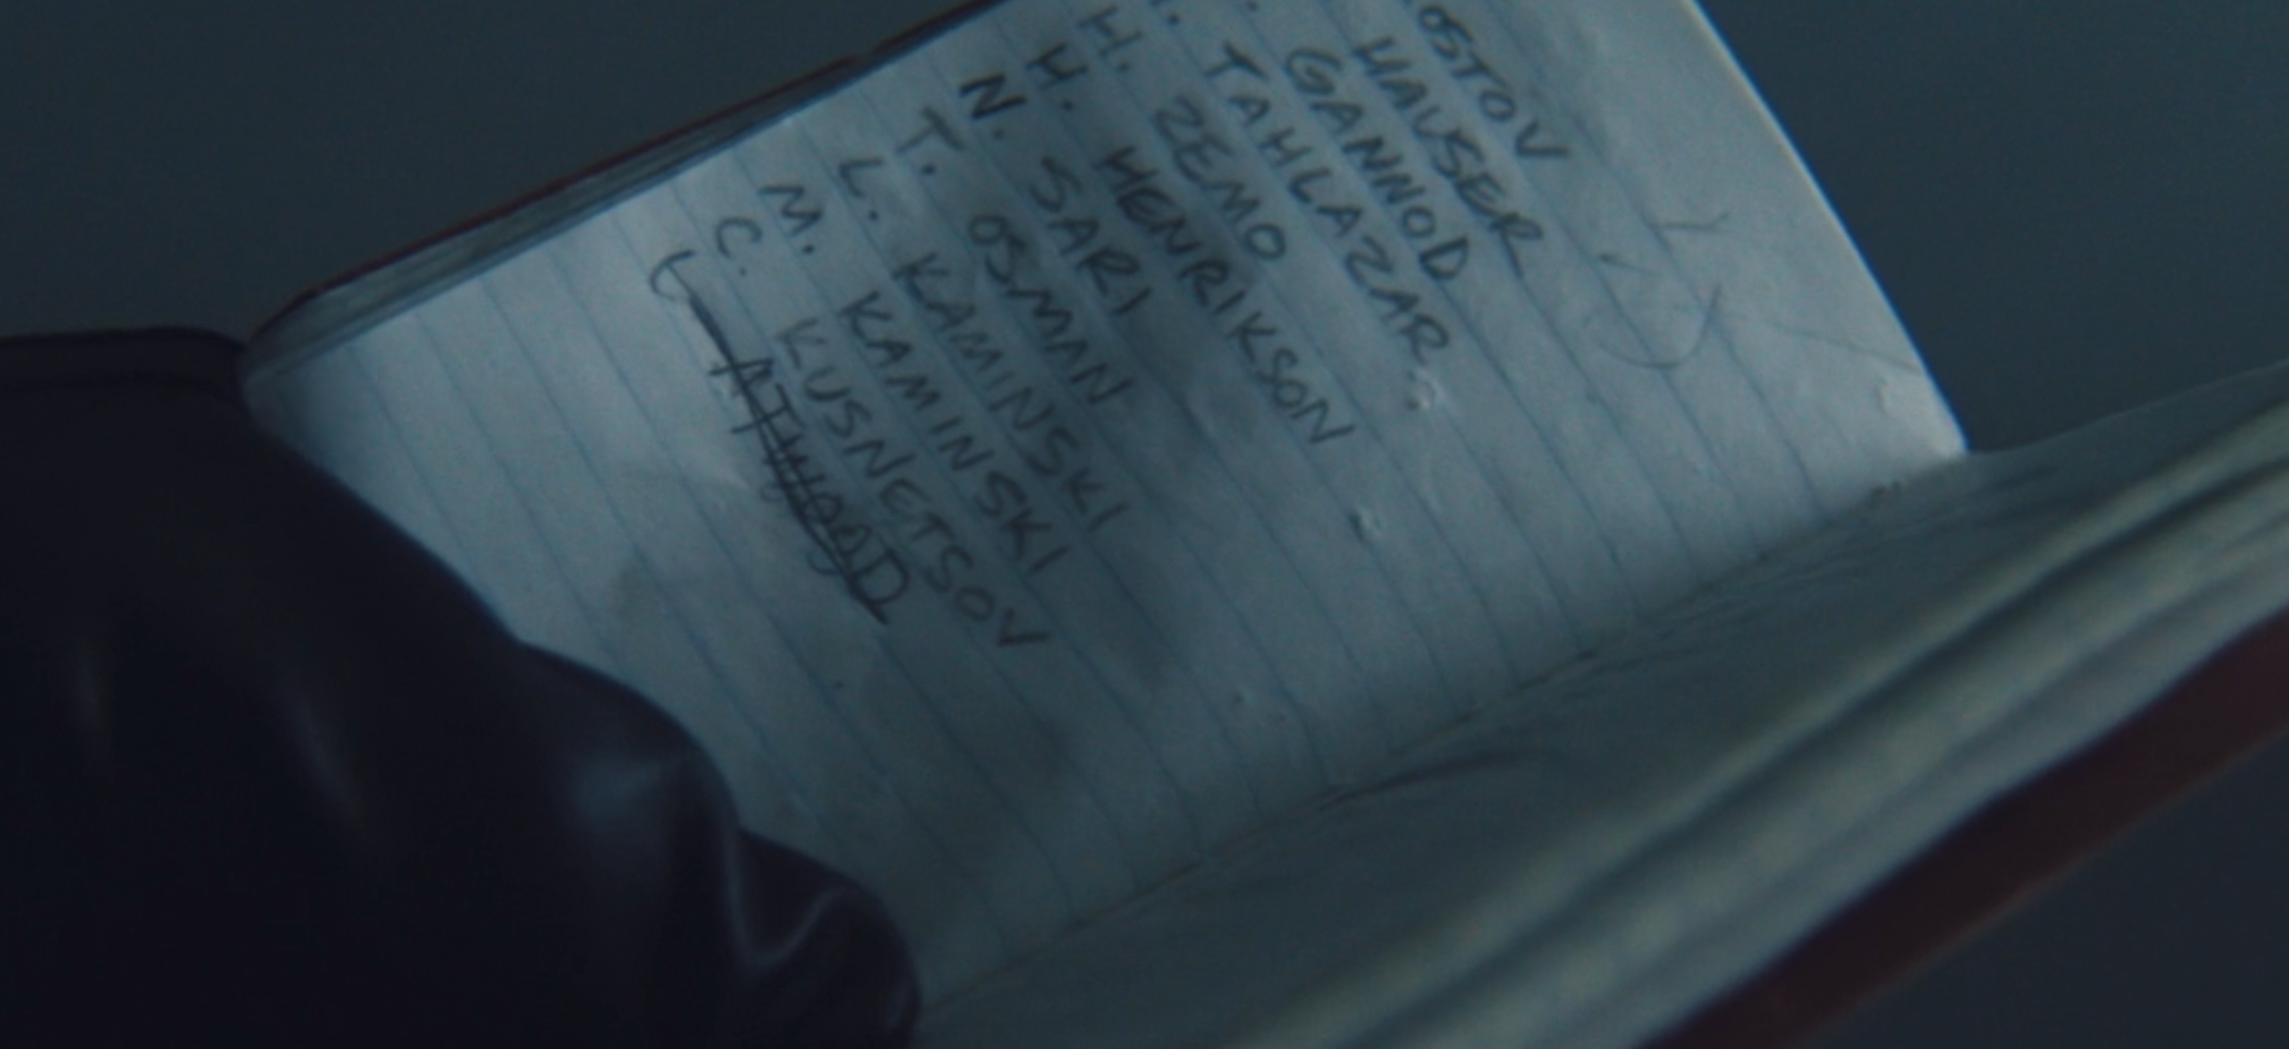 OSTOV
HAUSER
GANNOD
TAHLAZAR
H. ZEMO
H. HENRIKSON
N. SARI
T. OSMAN
L. KAMINSKI
M. KAMINSKI
C. KUSNETSOV
L ATWOOD